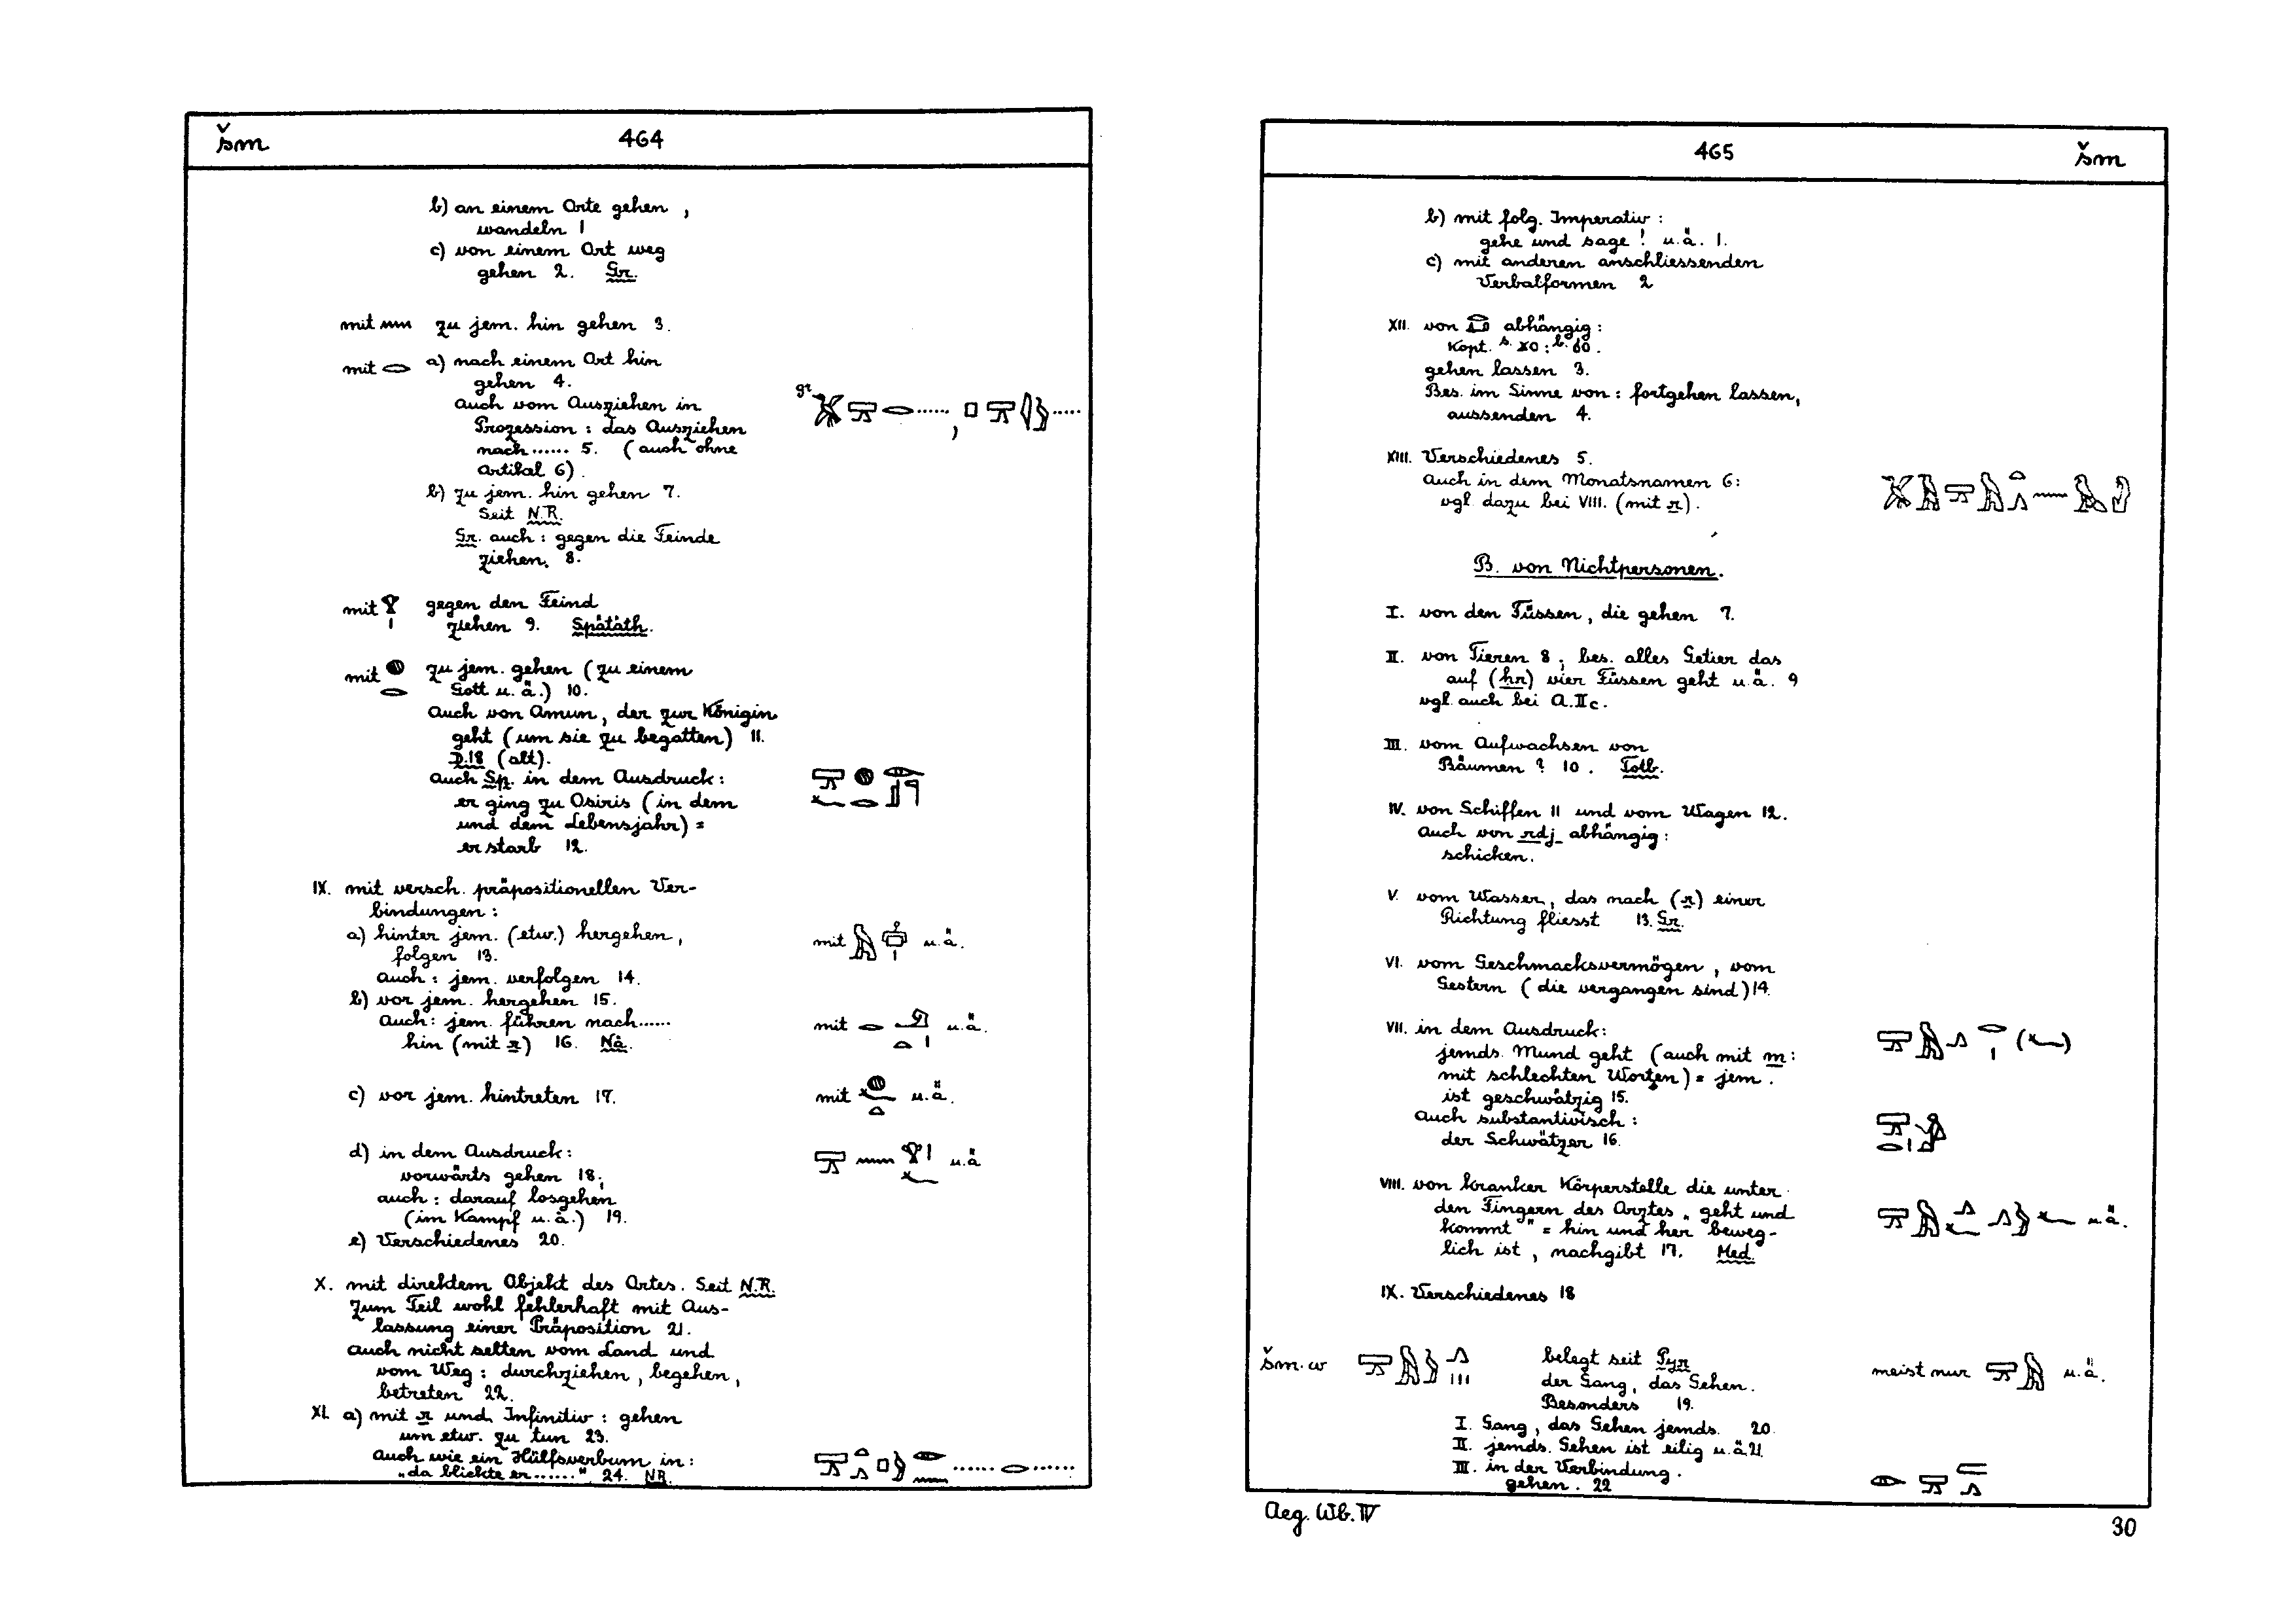 šm 464
b) an einem Orte gehen,
wandeln 1
c) von einem Ort weg
gehen 2. Gr.
mit 𓈖 zu jem. hin gehen 3.
mit 𓂋 a) nach einem Ort hin
gehen 4.
auch vom Ausziehen in
Prozession: das Ausziehen
nach...... 5. (auch ohne
Artikel 6).
b) zu jem. hin gehen 7.
Seit N.R.
Gr. auch: gegen die Feinde
ziehen. 8.
mit 𓁷𓏤 gegen den Feind
ziehen 9. Spätäth.
mit 𓐍𓂋 zu jem. gehen (zu einem
Gott u.ä.) 10.
Auch von Amun, der zur Königin
geht (um sie zu begatten) 11.
D.18 (alt).
auch Sp. in dem Ausdruck:
er ging zu Osiris (in dem
und dem Lebensjahr) =
er starb 12.
IX. mit versch. präpositionellen Ver-
bindungen:
a) hinter jem. (etw.) hergehen, mit u.ä.
folgen 13.
Auch: jem. verfolgen 14.
b) vor jem. hergehen 15.
Auch: jem. führen nach...... mit u.ä.
hin (mit r) 16. Nä.
c) vor jem. hintreten 17. mit u.ä.
d) in dem Ausdruck:
vorwärts gehen 18; u.ä
auch: darauf losgehen
(im Kampf u.ä.) 19.
e) Verschiedenes 20.
X. mit direktem Objekt des Ortes. Seit N.R.
Zum Teil wohl fehlerhaft mit Aus-
lassung einer Präposition 21.
Auch nicht selten vom Land und
vom Weg: durchziehen, begehen,
betreten 22.
XI. a) mit r und Infinitiv: gehen
um etw. zu tun 23.
Auch wie ein Hülfsverbum in:
"da blickte er......" 24. NR.
465 šm
b) mit folg. Imperativ:
gehe und sage! u.ä. 1.
c) mit anderen anschliessenden
Verbalformen 2
XII. von abhängig:
Kopt.
gehen lassen 3.
Bes. im Sinne von: fortgehen lassen,
aussenden 4.
XIII. Verschiedenes 5.
Auch in dem Monatsnamen 6:
vgl. dazu bei VIII. (mit r).
B. von Nichtpersonen.
I. von den Füssen, die gehen 7.
II. von Tieren 8; bes. alles Getier das
auf (hr) vier Füssen geht u.ä. 9
vgl. auch bei A.IIc.
III. vom Aufwachsen von
Bäumen? 10. Totb.
IV. von Schiffen 11 und vom Wagen 12.
Auch von rdj abhängig:
schicken.
V. vom Wasser, das nach (r) einer
Richtung fliesst 13. Gr.
VI. vom Geschmacksvermögen, vom
Gestern (die vergangen sind) 14.
VII. in dem Ausdruck:
jemds. Mund geht (auch mit m:
mit schlechten Worten) = jem.
ist geschwätzig 15.
Auch substantivisch:
der Schwätzer 16.
VIII. von kranker Körperstelle die unter
den Fingern des Arztes „geht und
kommt" = hin und her beweg- u.ä.
lich ist, nachgibt 17. Med.
IX. Verschiedenes 18
šm.w belegt seit Pyr meist nur u.ä.
der Gang, das Gehen.
Besonders 19.
I. Gang, das Gehen jemds. 20.
II. jemds. Gehen ist eilig u.ä. 21.
III. in der Verbindung.
gehen. 22
Aeg. Wb. IV 30